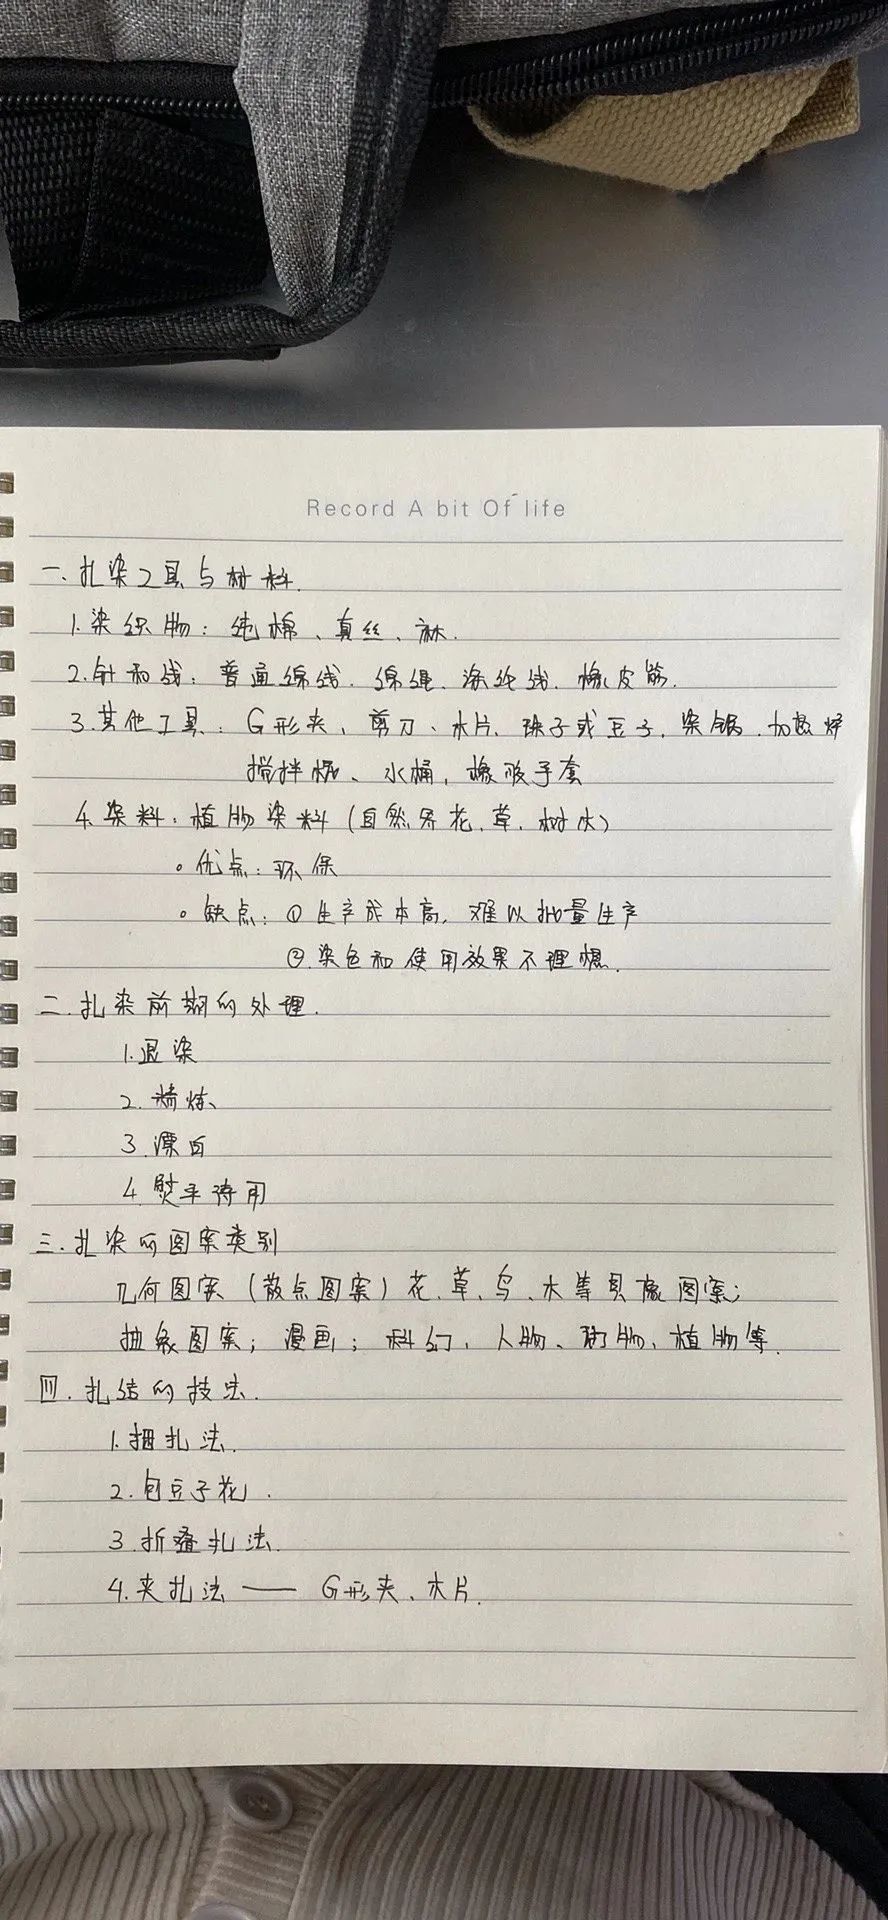 Record A bit Of life
一.扎染工具与材料.
1.染织物：纯棉、真丝、麻.
2.针和线：普通绵线.绵绳、涤纶线.橡皮筋.
3.其他工具：G形夹、剪刀、木片、珠子或豆子、染锅、加热炉
搅拌棍、水桶，橡胶手套
4.染料：植物染料(自然界花、草、树木)
。优点：环保
。缺点：①生产成本高，难以批量生产
②.染色和使用效果不理想.
二.扎染前期的处理.
1.退染
2.精炼、
3.漂白
4.熨平待用
三.扎染的图案类别
几何图案(散点图案)花、草、鸟、木等具像图案；
抽象图案；漫画；科幻、人物、动物、植物等.
四.扎结的技法.
1.捆扎法.
2.包豆子花.
3.折叠扎法.
4.夹扎法——G形夹、木片.